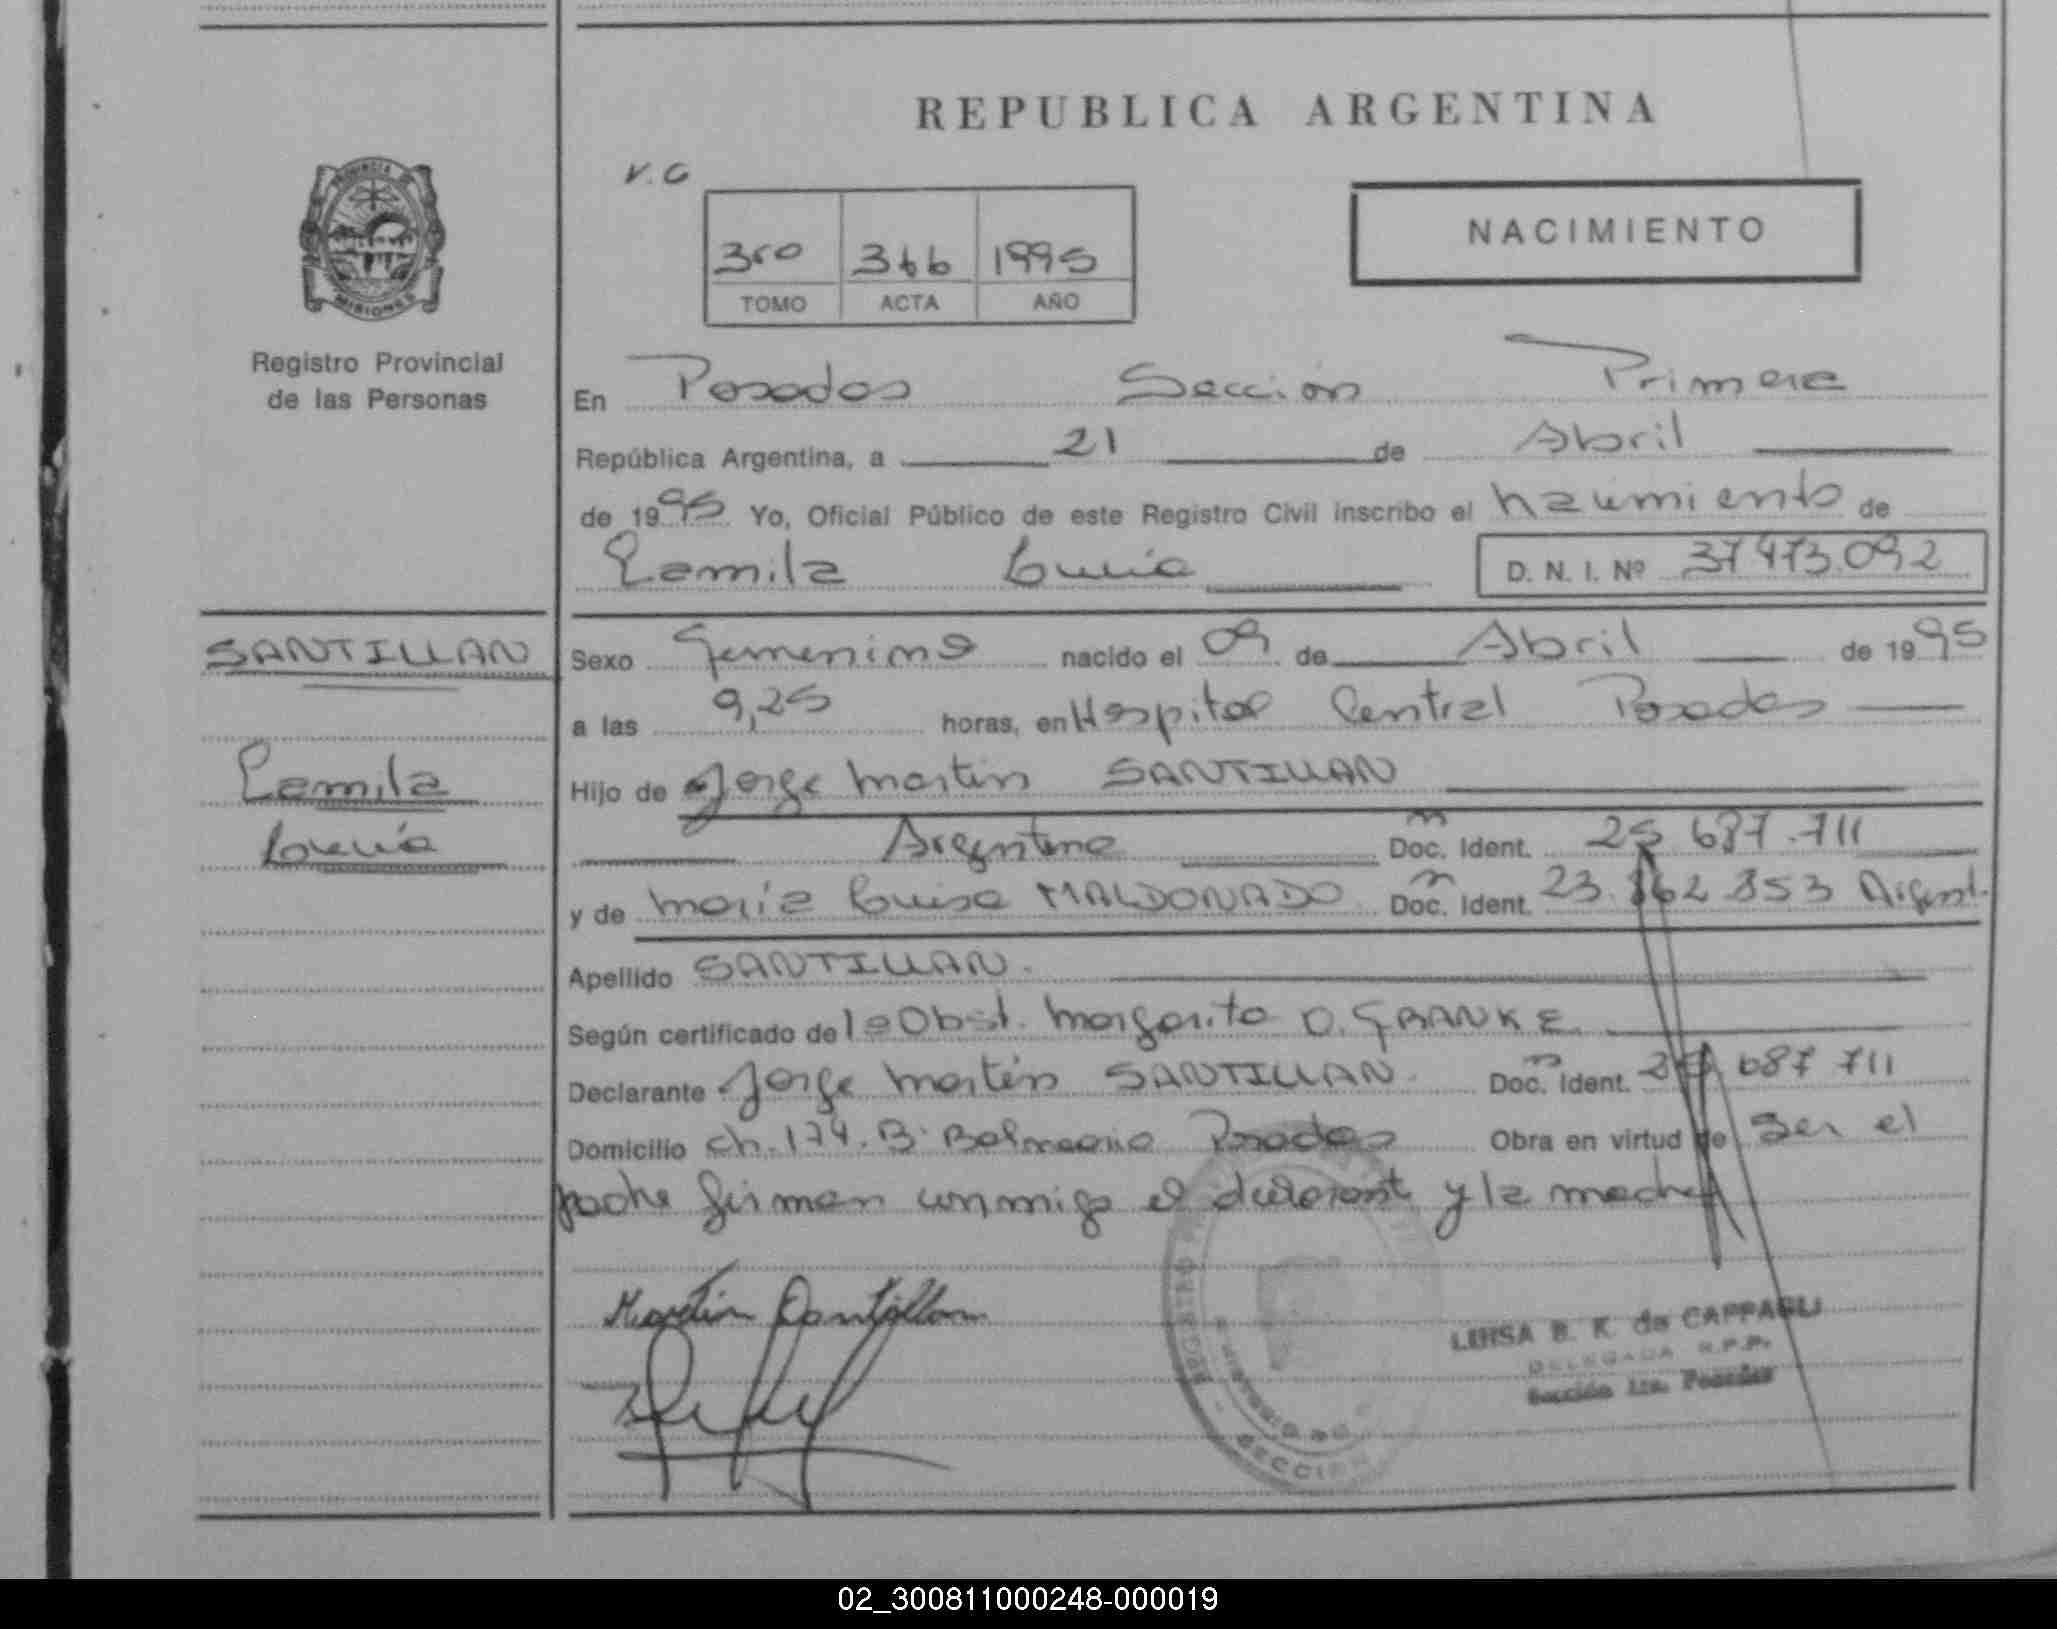 REPUBLICA ARGENTINA
V.G
NACIMIENTO
3ro 366 1995
TOMO ACTA AÑO
PROVINCIA DE MISIONES
Registro Provincial
de las Personas
En Posadas Sección Primera
República Argentina, a 21 de Abril
de 1995 Yo, Oficial Público de este Registro Civil inscribo el nacimiento de
Camila Lucía D. N. I. Nº 37 473.092
SANTILLAN
Camila
Lucía
Sexo Femenino nacido el 09 de Abril de 1995
a las 9,25 horas, en Hospital Central Posadas
Hijo de Jorge Martín SANTILLAN
Argentino Doc. Ident. 25 687.711
y de María Luisa MALDONADO Doc. Ident. 23. 853 Argent.
Apellido SANTILLAN.
Según certificado de la Obst. Margarita O. GRANKE.
Declarante Jorge Martín SANTILLAN. Doc. Ident. 687 711
Domicilio Ch. 174. B: Balneario Posadas Obra en virtud de ser el
padre firman conmigo el declarant y la madre
Martin Santillan
LUISA B. K. de CAPPAGLI
DELEGADA R.P.P.
Sección 1ra. Posadas
REGISTRO
MINISTERIO DE
SECCION
02_300811000248-000019